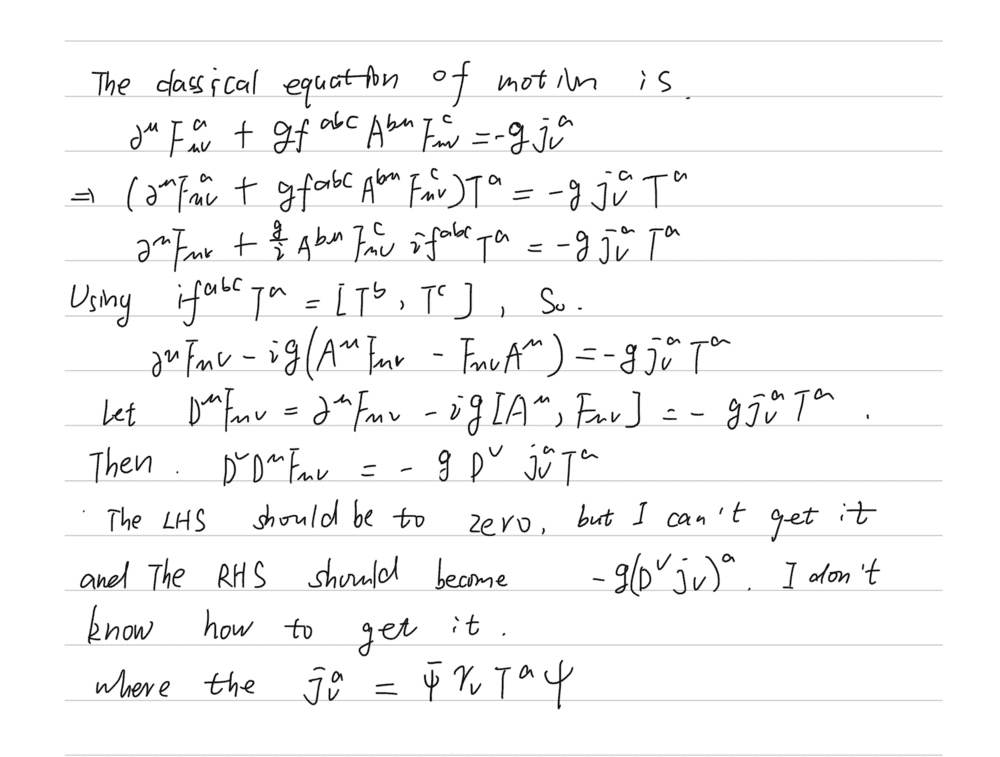 The classical equation of motion is.
∂^μ F^a_μν + g f^abc A^bμ F^c_μν = -g j^a_ν
⇒ (∂^μ F^a_μν + g f^abc A^bμ F^c_μν) T^a = -g j^a_ν T^a
∂^μ F_μν + g/i A^bμ F^c_μν i f^abc T^a = -g j^a_ν T^a
Using i f^abc T^a = [T^b, T^c], So.
∂^μ F_μν - ig(A^μ F_μν - F_μν A^μ) = -g j^a_ν T^a
Let D^μ F_μν = ∂^μ F_μν - ig[A^μ, F_μν] = - g j^a_ν T^a .
Then. D^ν D^μ F_μν = - g D^ν j^a_ν T^a
The LHS should be to zero, but I can't get it
and The RHS should become -g(D^ν j_ν)^a. I don't
know how to get it.
where the j^a_ν = ψ̄ γ_ν T^a ψ